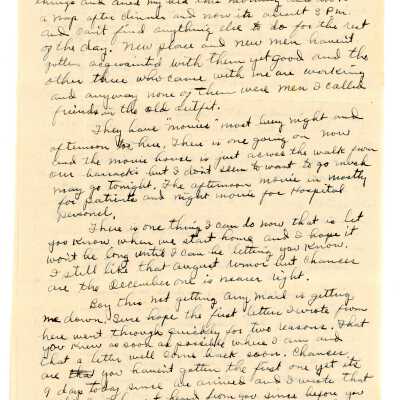 things and
a nap after dinner and now its about 3 P.M.
and can't find anything else to do for the rest
of the day. New place and new men haven't
gotten acquainted with them yet good and the
other three who came with me are working
and anyway none of them were men I called
friends in the old outfit.
They have "movies" most every night and
afternoon here. There is one going on now
and the movie house is just across the walk from
our barracks but I don't seem to want to go much
may go tonight. The afternoon movie is mostly
for patients and night movie for Hospital
personel.
There is one thing I can do now that is let
you know when we start home and I hope it
won't be long until I can be letting you know.
I still like that August rumor but chances
are the December one is nearer right.
Boy this not getting any mail is getting
me down. Sure hope the first letter I wrote from
here went through quickly for two reasons. That
you knew as soon as possible where I am and
that a letter will come back soon. Chances
are you haven't gotten the first one yet its
9 days today since we arrived and I wrote that
heard from you since before you